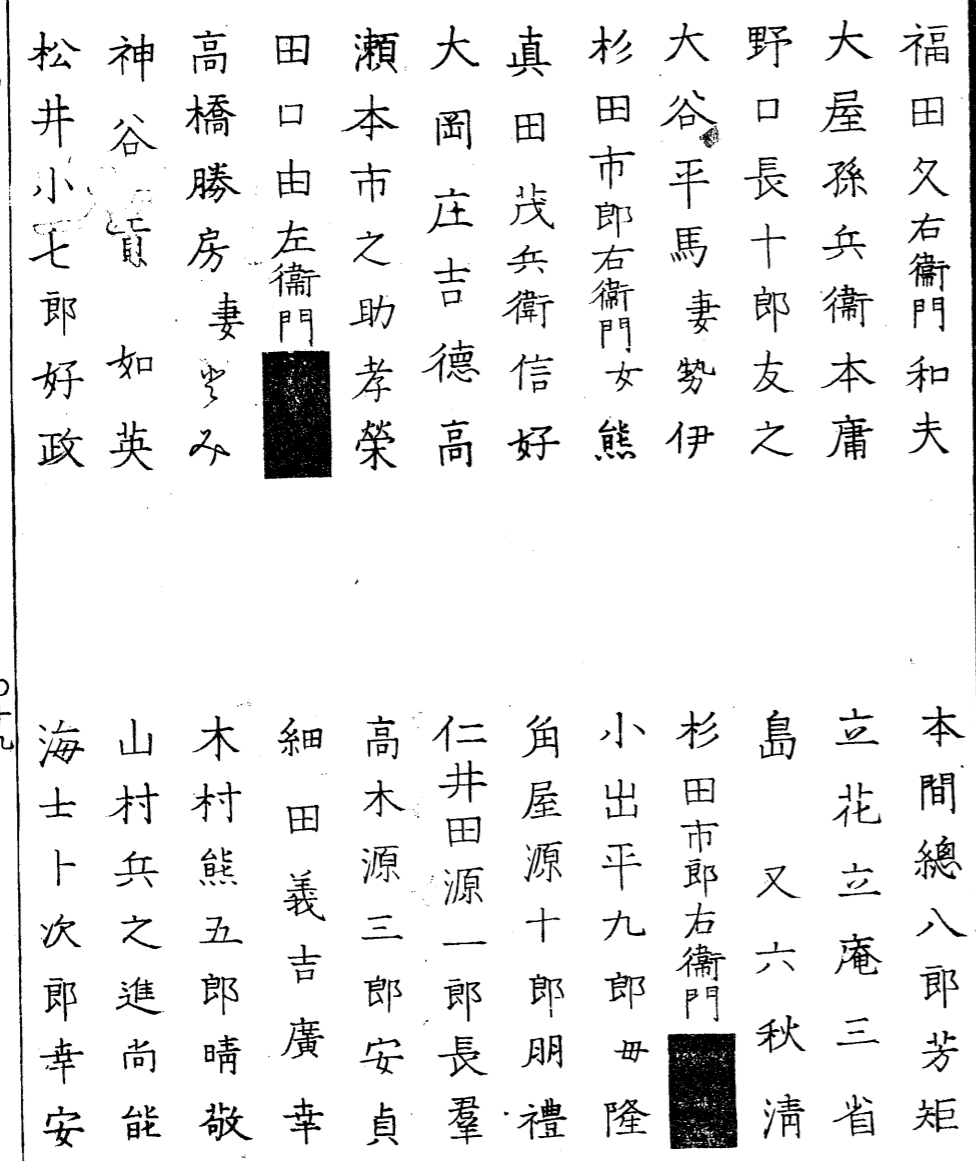 福田久右衞門和夫
大屋孫兵衞本庸
野口長十郎友之
大谷平馬妻勢伊
杉田市郎右衞門女熊
真田茂兵衛信好
大岡庄吉德高
瀬本市之助孝榮
田口由左衞門
高橋勝房妻とみ
神谷 如英
松井小七郎好政
本間總八郎芳矩
立花立庵三省
島又六秋淸
杉田市郎右衞門
小出平九郎毋隆
角屋源十郎朋禮
仁井田源一郎長羣
高木源三郎安貞
細田義吉廣幸
木村熊五郎晴敬
山村兵之進尚能
海士卜次郎幸安